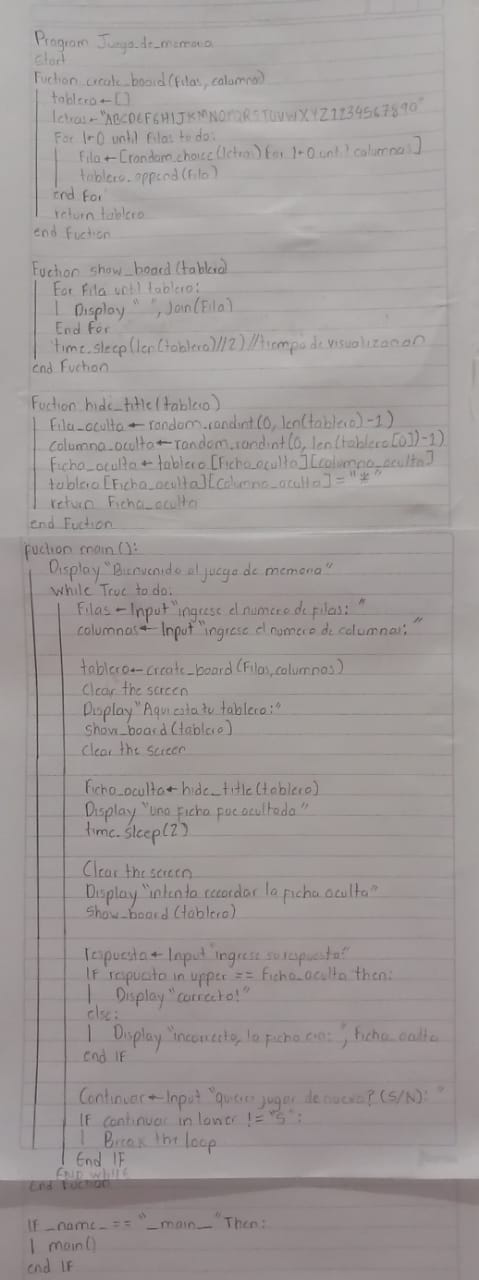 Program Juego_de_memoria
Start
Fuction create_board(filas, columna)
tablero ← []
letras ← "ABCDEFGHIJKMNOPQRSTUVWXYZ1234567890"
For 1←0 until Filas to do:
Fila ← [random.choice(letras) for 1←0 until columnas]
tablero.append(fila)
end For
return tablero
end Fuction
Fuction show_board(tablero)
For Fila until tablero:
Display " ", Join(Fila)
End For
time.sleep(len(tablero)//2) //tiempo de visualizacion
end Fuction
Fuction hide_title(tablero)
Fila_oculta ← random.randint(0, len(tablero)-1)
columna_oculta ← random.randint(0, len(tablero[0])-1)
Ficha_oculta ← tablero[Ficha_oculta][columna_oculta]
tablero[Ficha_oculta][columna_oculta]="*"
return Ficha_oculta
end Fuction
fuction main():
Display "Bienvenido al juego de memoria"
While True to do:
Filas ← Input "ingrese el numero de filas: "
columnas ← Input "ingrese el numero de columnas: "
tablero ← create_board(Filas, columnas)
Clear the screen
Display "Aqui esta tu tablero:"
Show_board(tablero)
Clear the screen
Ficha_oculta ← hide_title(tablero)
Display "una ficha fue ocultada"
time.sleep(2)
Clear the screen
Display "intenta recordar la ficha oculta"
Show_board(tablero)
respuesta ← Input "ingrese su respuesta:"
IF respuesta in upper == Ficha_oculta then:
Display "correcto!"
else:
Display "incorrecto, la ficha era: ", Ficha_oculta
end IF
Continuar ← Input "quieres jugar de nuevo? (S/N): "
IF continuar in lower != "S":
Break the loop
End IF
End while
end Fuction
IF _name_ == "_main_" Then:
main()
end IF